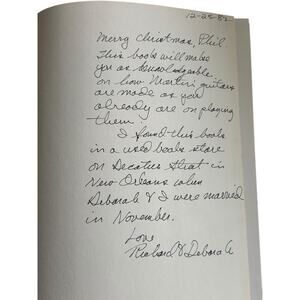 12-25-82
Merry Christmas, Phil.
This book will make
you as knowledgeable
on how Martin guitars
are made as you
already are on playing
them!
I found this book
in a used book store
on Decatur street in
New Orleans when
Deborah & I were married
in November.
Love
Richard & Deborah